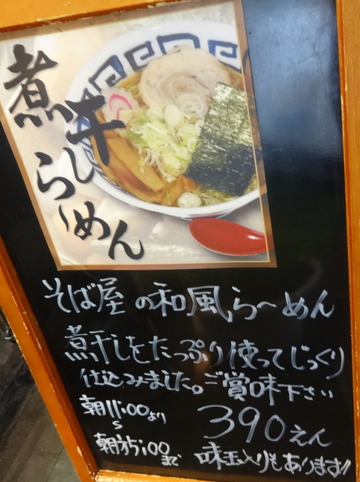 煮干し
ら〜めん
そば屋の和風ら〜めん
煮干しをたっぷり使ってじっくり
仕込みました。ご賞味下さい
朝11:00より
S
朝方5:00まで
390えん
味玉入りもあります!!